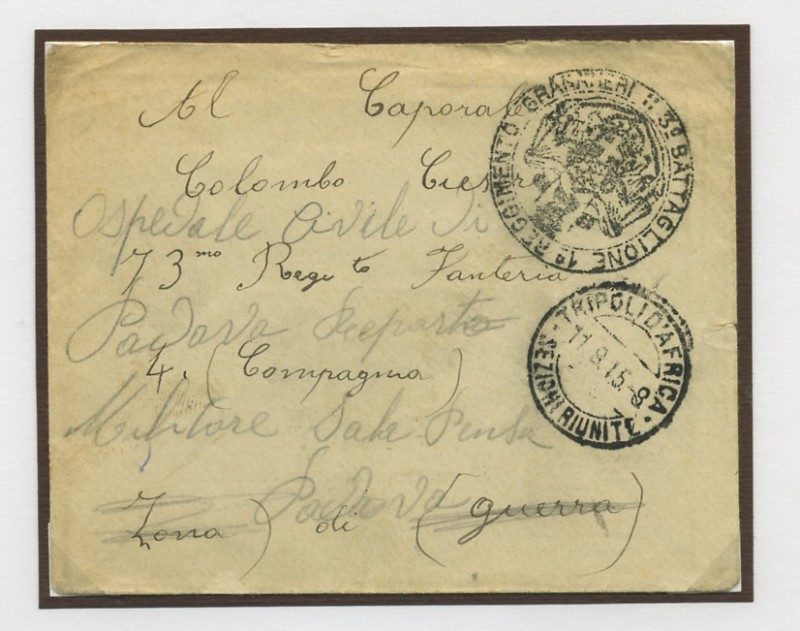 Al Caporale
Colombo Cesare
Ospedale Civile di
73mo Regi to Fanteria
Padova Reparto
4. (Compagnia)
Militare Sala
Padova
Zona) di (guerra)
1º REGGIMENTO GRANATIERI :: 3º BATTAGLIONE
TRIPOLI D'AFRICA
11.8.15-8
SEZIONI RIUNITE